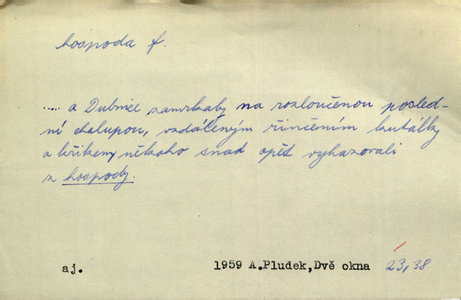 hospoda f.
... a Dubnice zamrkaly na rozloučenou posled-
ní chalupou, vzdáleným řinčením kutálky
a křikem, někoho snad opět vyhazovali
z hospody.
aj. 1959 A.Pludek, Dvě okna 23, 38